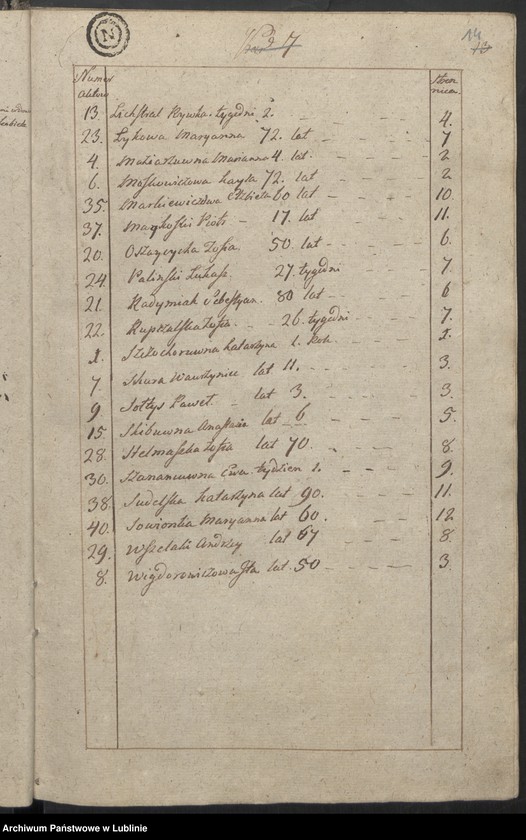 N
7
14
Numer aktow
Stronnica
13. Lichstral Rywka tygodni 2. 4.
23. Lykowa Maryanna 72. lat 7
4. Maziarzuwna Marianna 4. lat. 2
6. Moszkowiczowa Hayka 72. lat 2
35. Markiewiczowa Elzbieta 60 lat 10.
37. Piotr 17. lat 11.
20. Zofia. 50 lat 6.
24. Palinski Łukasz. 27. tygodni 7.
21. Radymiak Sebestyan. 80 lat 6
22. Zofia 26. tygodni 7.
1. Katarzyna 1. Rok 1.
7 Skura Wawrzyniec lat 11. 3.
9. Sołtys Paweł lat 3. 3.
15. Skibuwna Anastazia lat 6 5.
28. Stelmaska Zofia lat 70. 8.
30. Ewa tydzien 1. 9.
38. Sudelska Katarzyna lat 90. 11.
40. Sowionka Maryanna lat 60. 12
29. Wszelaki Andrzey lat 67 8.
8. Wigdorowiczowa Ita lat. 50 3.
Archiwum Państwowe w Lublinie